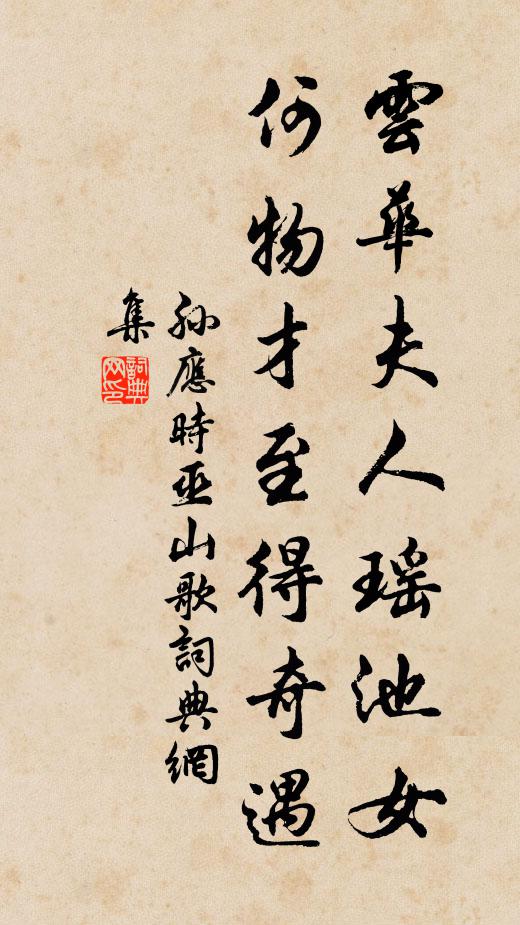 雲華夫人瑶池女
何物才至得奇遇
孙應時巫山歌詞典網
集
詞典
网印